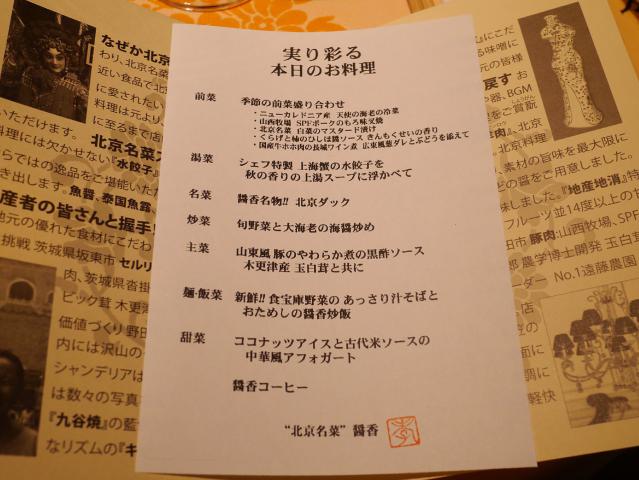 実り彩る
本日のお料理
前菜 季節の前菜盛り合わせ
・ニューカレドニア産 天使の海老の冷菜
・山西牧場 SPFポークのもろ味叉焼
・北京名菜 白菜のマスタード漬け
・くらげと柿のひしほ醤ソース きんもくせいの香り
・国産牛ホホ肉の長城ワイン煮 広東風葱ダレとぶどうを添えて
湯菜 シェフ特製 上海蟹の水餃子を
秋の香りの上湯スープに浮かべて
名菜 醤香名物!! 北京ダック
炒菜 旬野菜と大海老の海醤炒め
主菜 山東風 豚のやわらか煮の黒酢ソース
木更津産 玉白茸と共に
麺・飯菜 新鮮!! 食宝庫野菜の あっさり汁そばと
おためしの醤香炒飯
甜菜 ココナッツアイスと古代米ソースの
中華風アフォガート
醤香コーヒー
“北京名菜” 醤香
なぜか北京
わり、北京名菜
近い食品で北
に愛されたい
料理は元より
に至るまで店
いただけます。 北京名菜
料理には欠かせない『水餃子』
らではの逸品をご堪能いた
き出します。魚醤、泰国魚露、
産者の皆さんと握手!
地元の優れた食材にこだわ
挑戦 茨城県坂東市 セルリ
肉、茨城県沓掛
ピック茸 木更津
価値づくり 野田
内には沢山の
シャンデリアは
は数々の写真
『九谷焼』の藍
なリズムの『キ
にこだ
る味噌に
の皆様
戻す お
や器、BGM
をご賞
羊肉』、
京料理
、素材の旨味を最大限に
どの醤をご用意しました。
しました。『地産地消』特
フルーツ 並14度以上の
田市 豚肉:山西牧場、SPF
郎 農学博士開発 玉白茸
ーダー No.1遠藤農園
店
面に
調
軽快